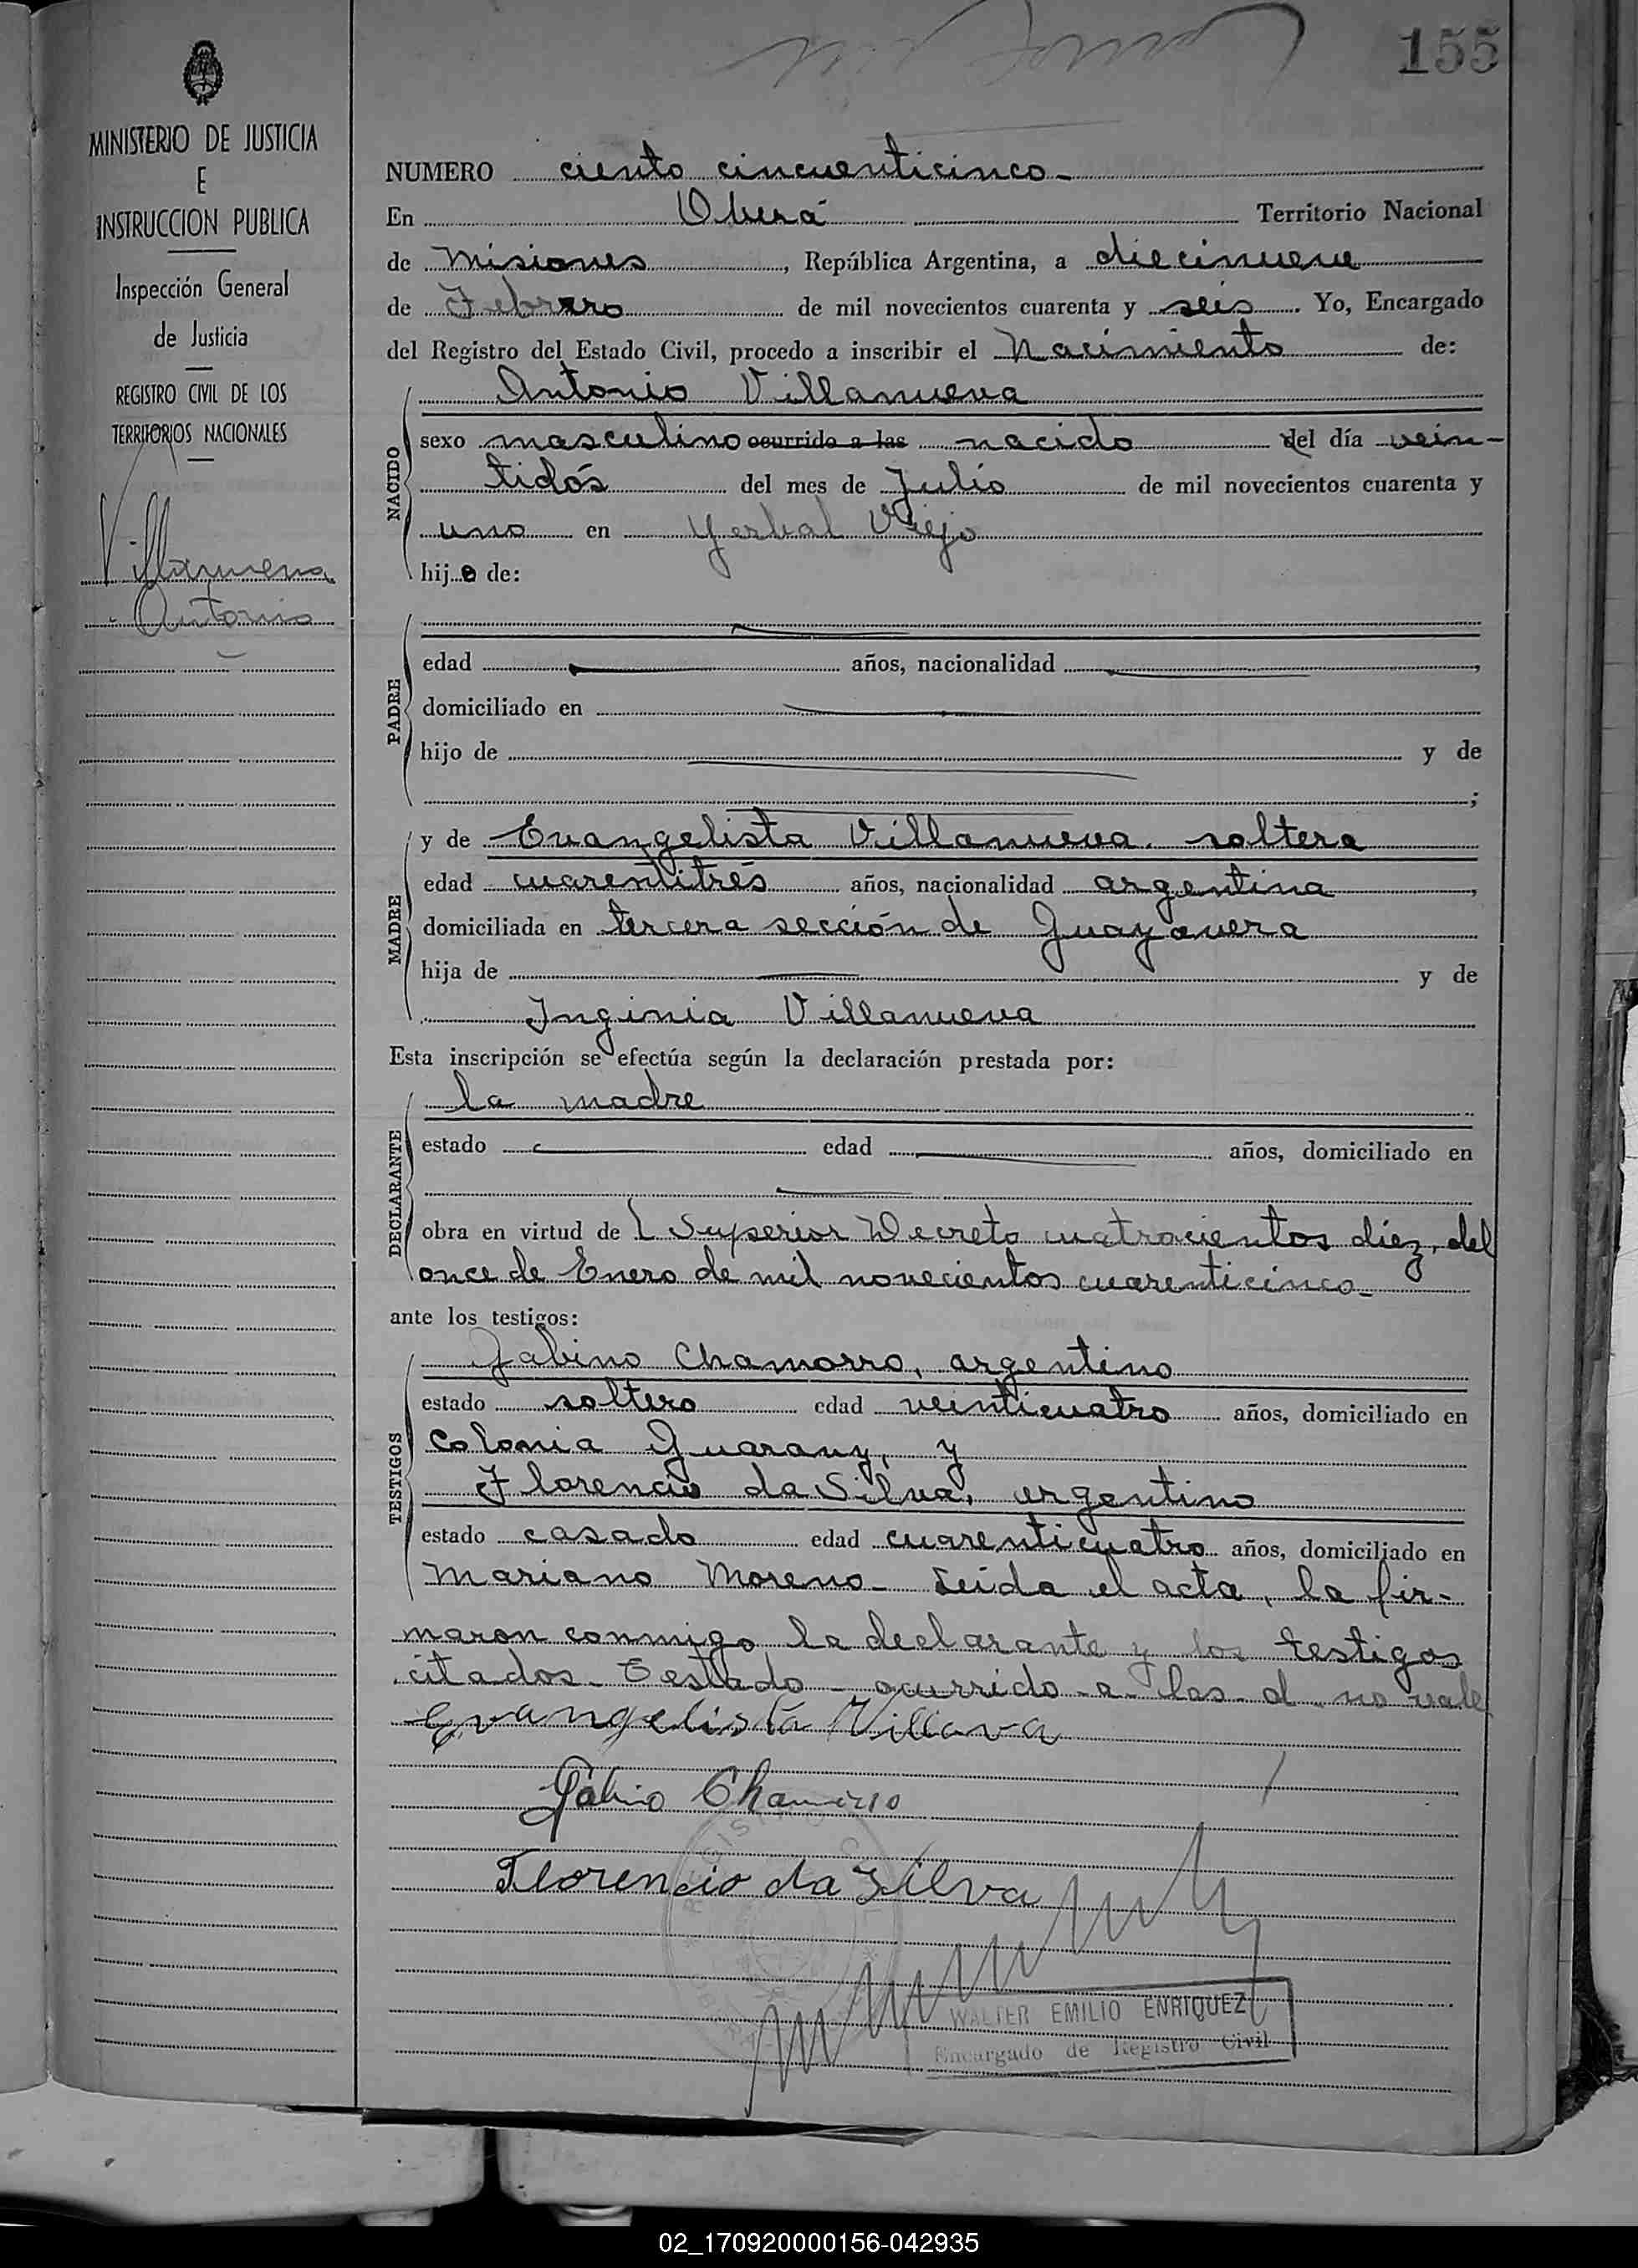 155
MINISTERIO DE JUSTICIA
E
INSTRUCCION PUBLICA
Inspección General
de Justicia
REGISTRO CIVIL DE LOS
TERRITORIOS NACIONALES
Villanueva
Antonio
NUMERO ciento cincuenticinco
En Oberá Territorio Nacional
de Misiones, República Argentina, a diecinueve
de Febrero de mil novecientos cuarenta y seis. Yo, Encargado
del Registro del Estado Civil, procedo a inscribir el Nacimiento de:
NACIDO
Antonio Villanueva
sexo masculino ocurrido a las nacido del día vein-
tidós del mes de Julio de mil novecientos cuarenta y
uno en Yerbal Viejo
hijo de:
PADRE
edad años, nacionalidad ,
domiciliado en
hijo de y de
;
MADRE
y de Evangelista Villanueva. soltera
edad cuarentitrés años, nacionalidad argentina,
domiciliada en tercera sección de Guayavera
hija de y de
Inginia Villanueva
Esta inscripción se efectúa según la declaración prestada por:
DECLARANTE
la madre
estado edad años, domiciliado en
obra en virtud del Superior Decreto cuatrocientos diez, del
once de Enero de mil novecientos cuarenticinco
ante los testigos:
TESTIGOS
Gabino Chamorro, argentino
estado soltero edad veinticuatro años, domiciliado en
Colonia Guarany, y
Florencio da Silva, argentino
estado casado edad cuarenticuatro años, domiciliado en
Mariano Moreno- Leída el acta, la fir-
maron conmigo la declarante y los testigos
citados- Testado - ocurrido - a - las - d no vale
Evangelista Villava
Gabino Chamorro
Florencio da Silva
WALTER EMILIO ENRIQUEZ
Encargado de Registro Civil
02_170920000156-042935